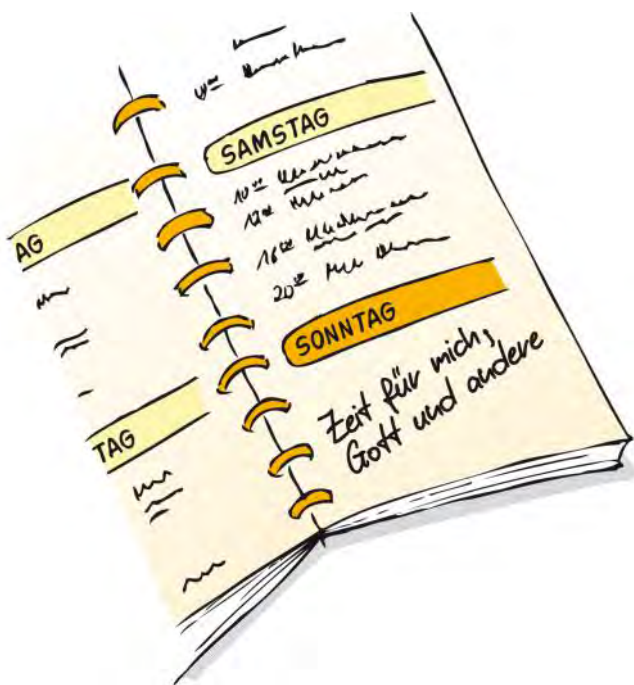 AG
TAG
SAMSTAG
10⁰⁰
12⁰⁰
16⁰⁰
20⁰⁰
SONNTAG
Zeit für mich,
Gott und andere